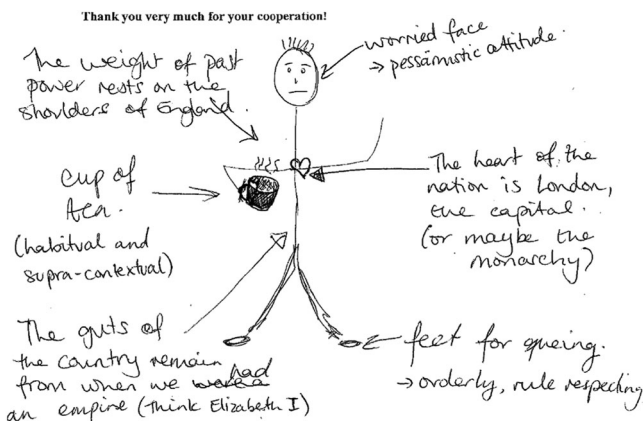 Thank you very much for your cooperation!
The weight of past
power rests on the
shoulders of England.
worried face
→ pessimistic attitude.
cup of
tea.
(habitual and
supra-contextual)
The heart of the
nation is London,
the capital.
(or maybe the
monarchy)
The guts of
the country remain
from when we had
an empire (think Elizabeth I)
feet for queing.
→ orderly, rule respecting